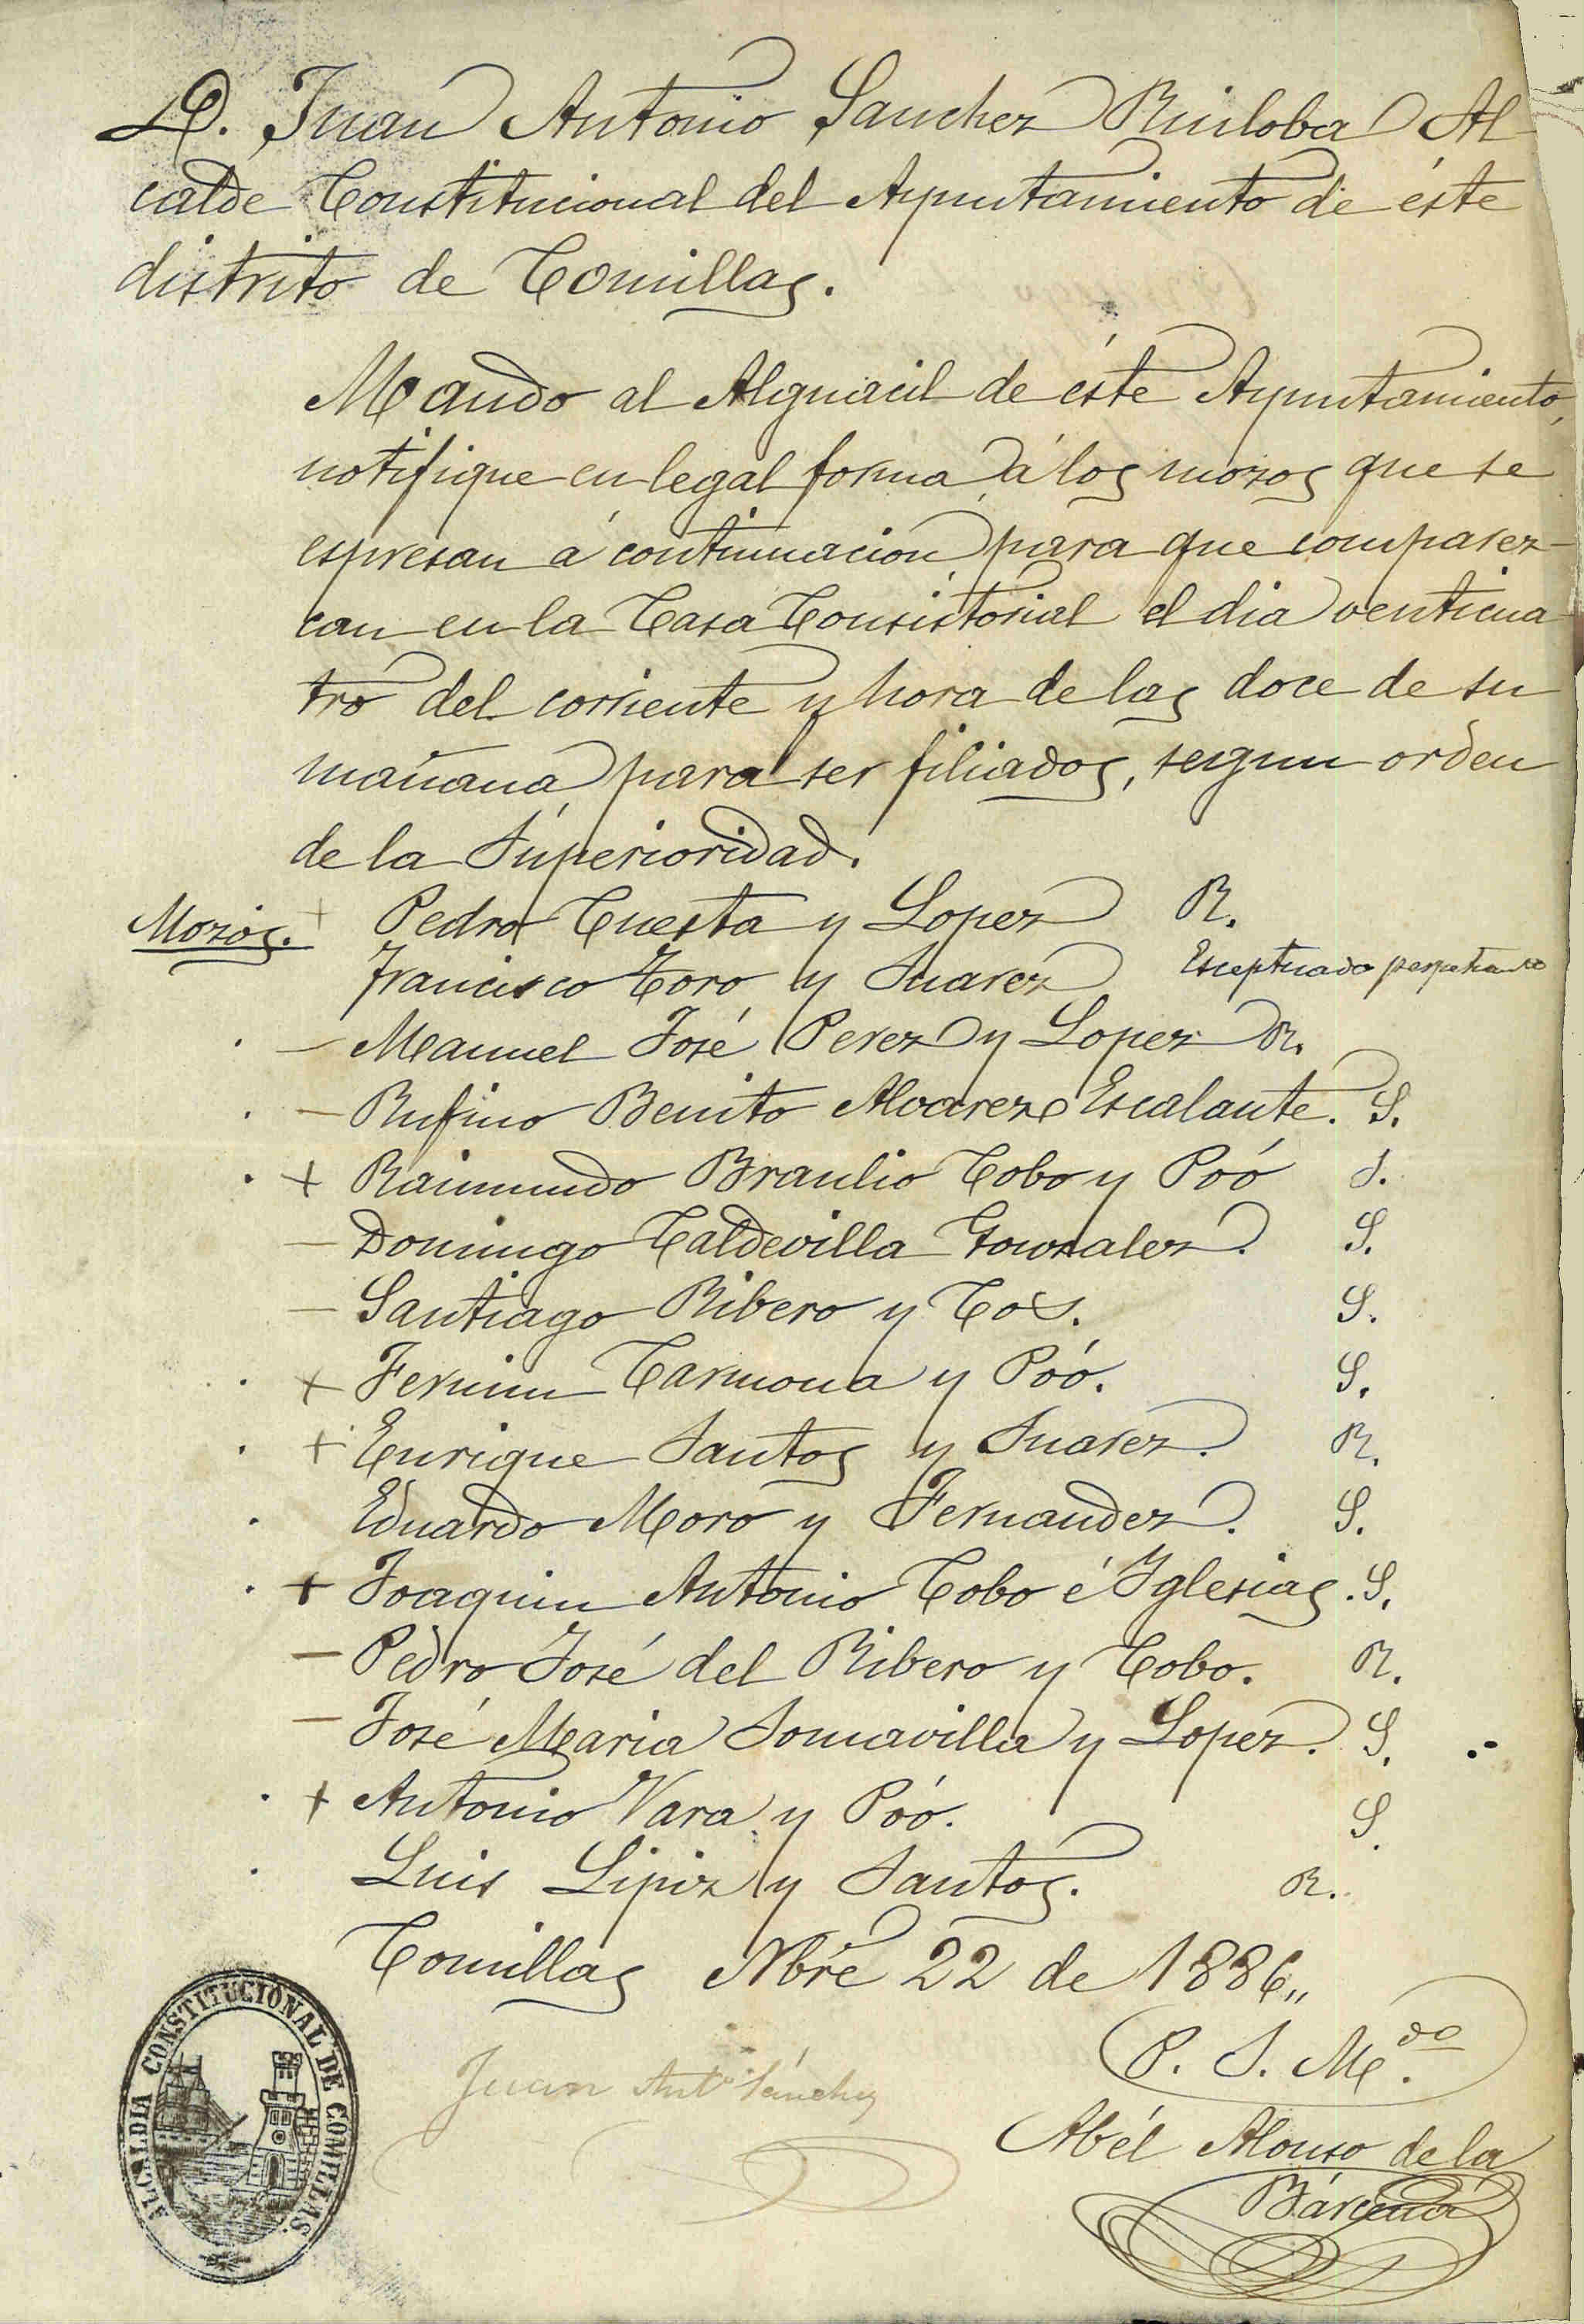 D. Juan Antonio Sanchez Ruiloba Al-
calde Constitucional del Ayuntamiento de éste
distrito de Comillas.
Mando al Alguacil de éste Ayuntamiento,
notifique en legal forma, á los mozos que se
espresan á continuacion, para que comparez-
can en la Casa Consistorial el dia venticua-
tro del corriente y hora de las doce de su
mañana, para ser filiados, segun orden
de la Superioridad.
Mozos. + Pedro Cuesta y Lopez R.
Francisco Toro y Suarez Esceptuado
· — Manuel José Perez y Lopez R.
· — Rufino Benito Alvarez Escalante. S.
· + Raimundo Braulio Cobo y Poó S.
— Domingo Caldevilla Gonzalez. S.
— Santiago Ribero y Cos. S.
· + Fermin Carmona y Poó. S.
· + Enrique Santos y Suarez. R.
· Eduardo Moro y Fernandez. S.
· + Joaquin Antonio Cobo é Yglesias. S.
— Pedro José del Ribero y Cobo. R.
— José Maria Somavilla y Lopez. S.
· + Antonio Vara y Poó. S.
· Luis Lipiz y Santos. R.
Comillas Nbre 22 de 1886„
P. S. M.do
Juan Anto Sánchez
Abél Alonso de la
Bárcena
ALCALDIA CONSTITUCIONAL DE COMILLAS.